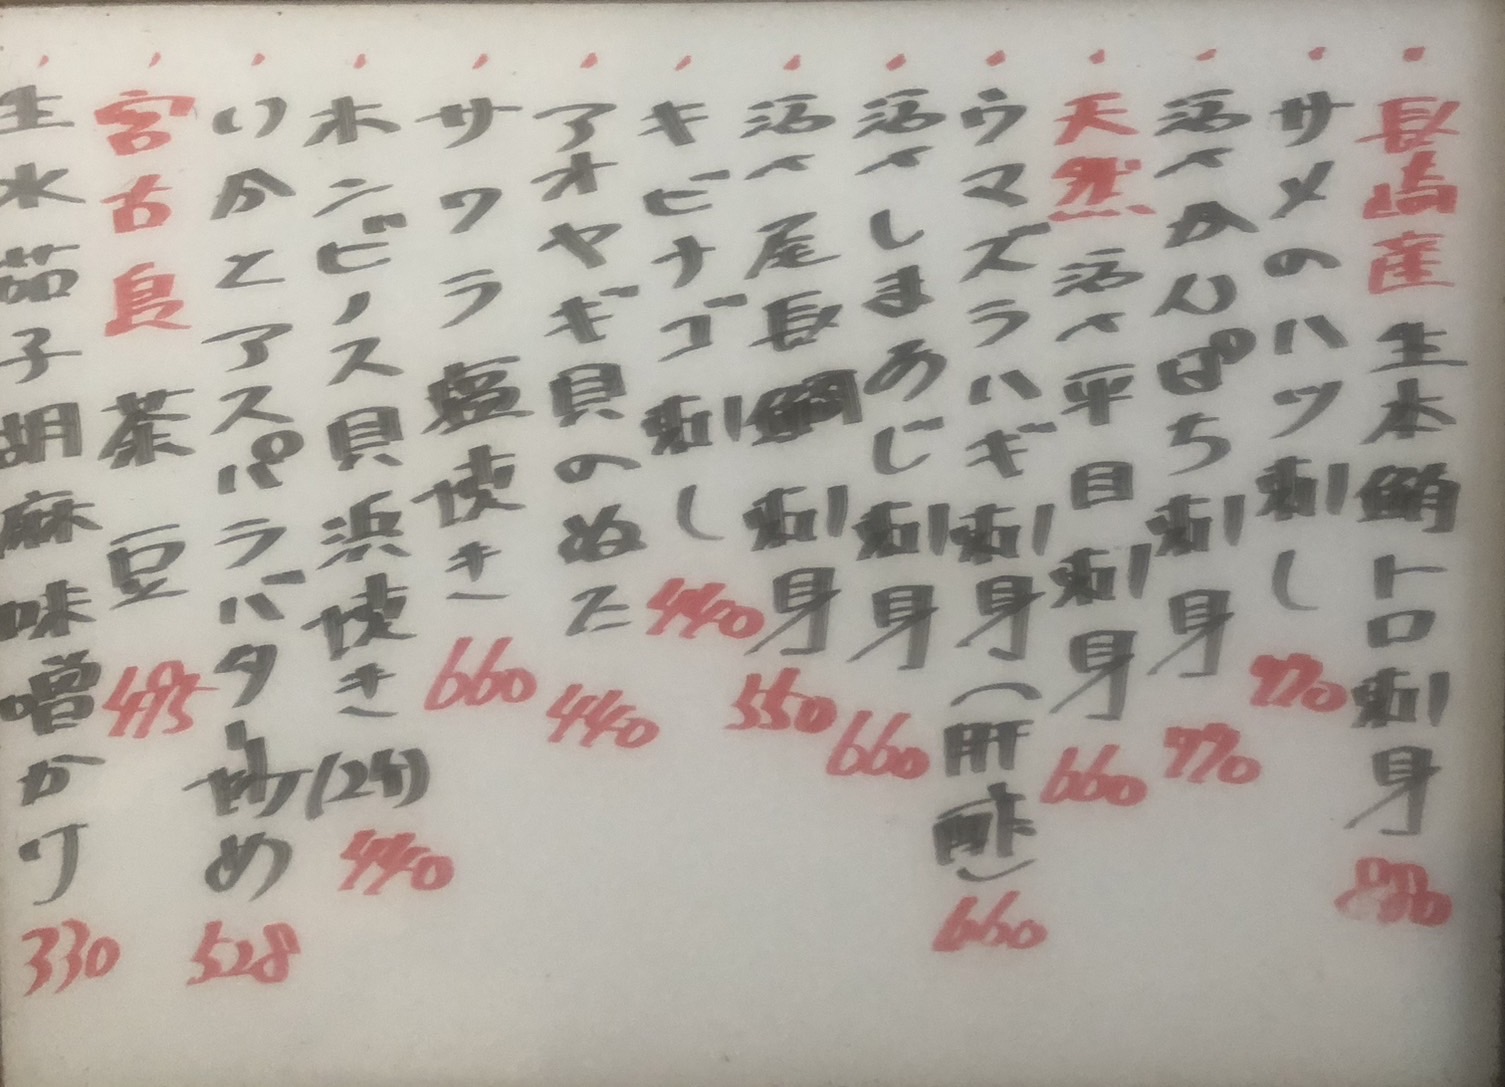 ・長崎産 生本鮪トロ刺身 880
・サメのハツ刺し 770
・活〆かんぱち刺身 770
・天然 活〆平目刺身 660
・ウマズラハギ刺身(肝酢) 660
・活〆しまあじ刺身 660
・活〆尾長鯛刺身 550
・キビナゴ刺し 440
・アオヤギ貝のぬた 440
・サワラ塩焼き 660
・ホンビノス貝浜焼き(2ケ) 440
・いかとアスパラバター炒め 528
・宮古島 茶豆 495
・生水茄子胡麻味噌かけ 330